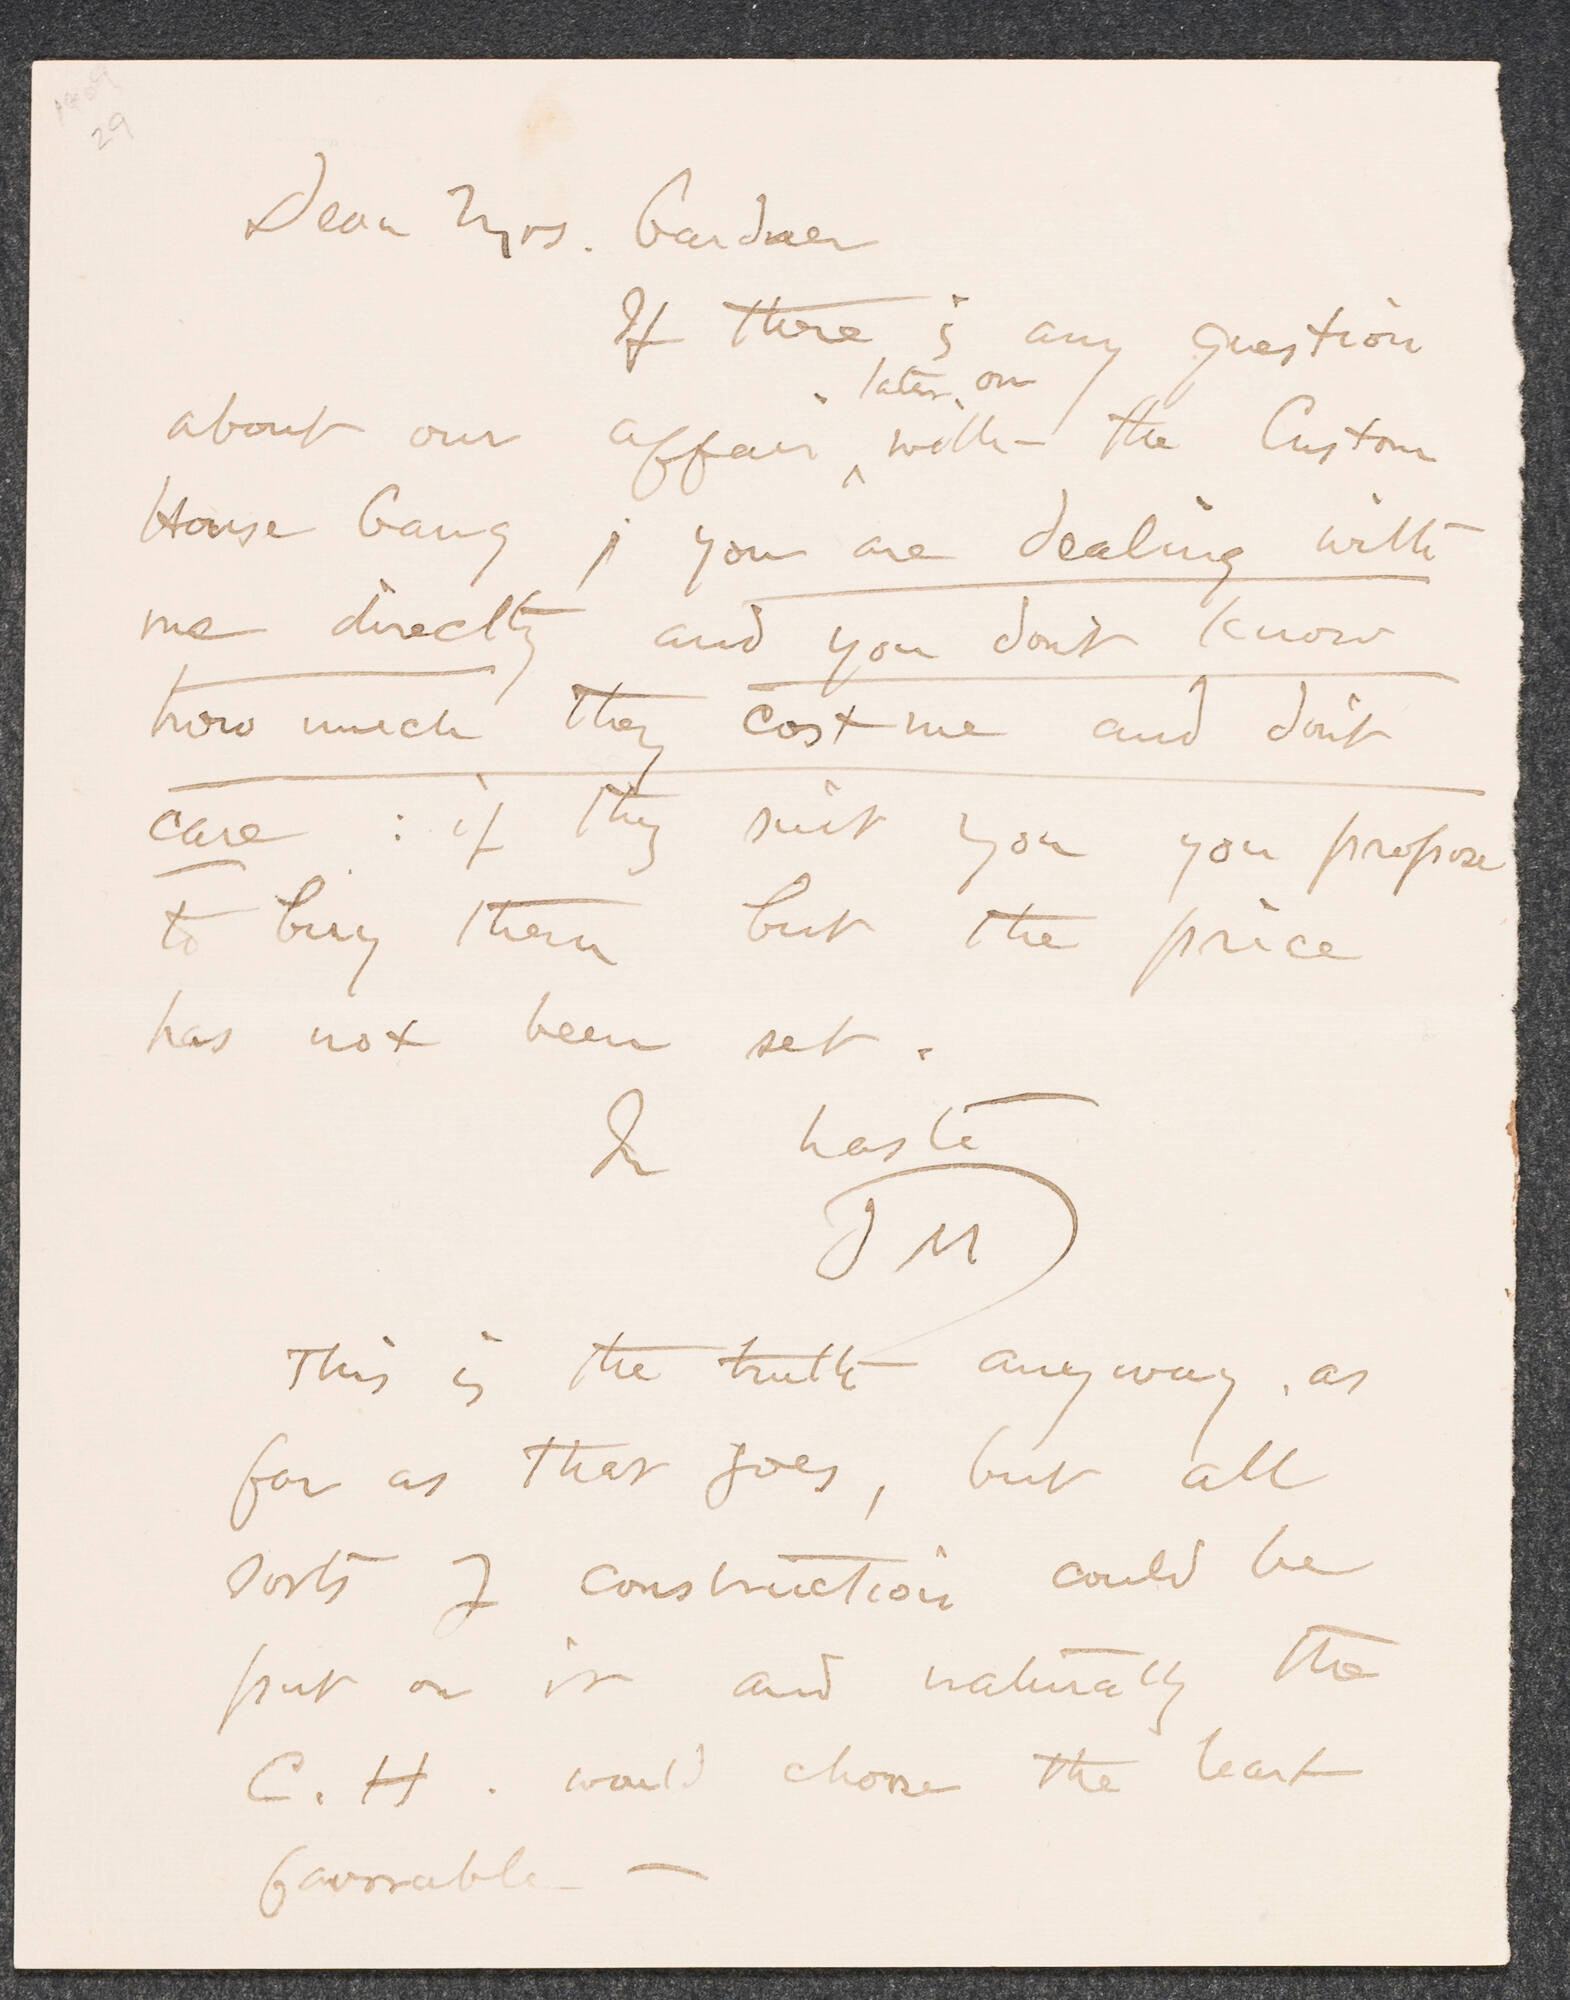 1909
29
Dear Mrs. Gardner
If there is any question
later on
about our affair with the Custom
House Gang ; you are dealing with
me directly and you don't know
how much they cost me and don't
care : if they suit you you propose
to buy them but the price
has not been set.
In haste
JM
This is the truth anyway, as
far as that goes, but all
sorts of construction could be
put on it and naturally the
C. H. would choose the least
favorable —